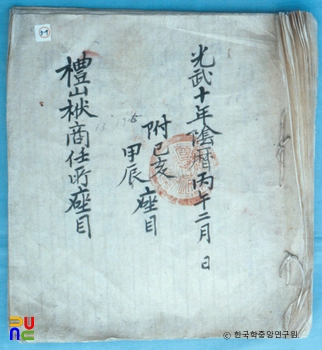 光武十年陰曆丙午二月 日
附己亥
甲辰 座目
禮山楸商任所座目
ⓒ 한국학중앙연구원